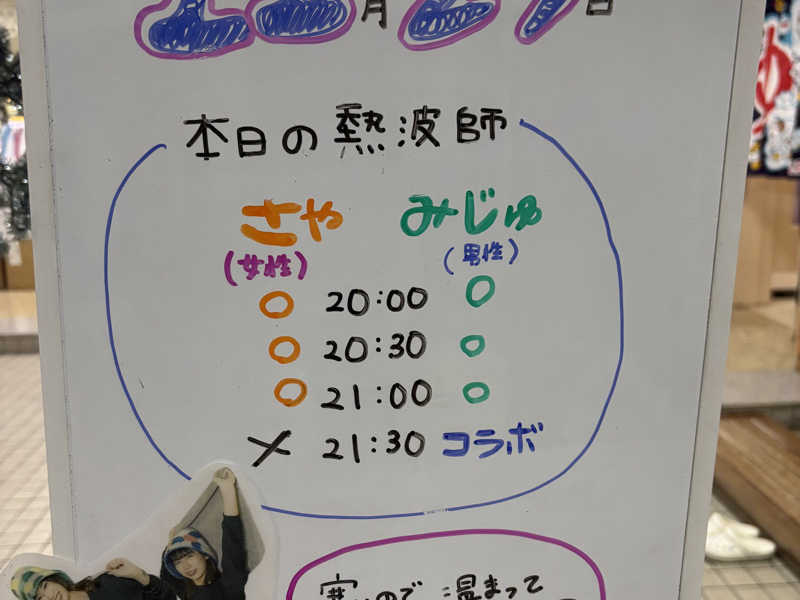 月 日
本日の熱波師
さや みじゅ
(女性) (男性)
○ 20:00 ○
○ 20:30 ○
○ 21:00 ○
× 21:30 コラボ
寒いので 温まって